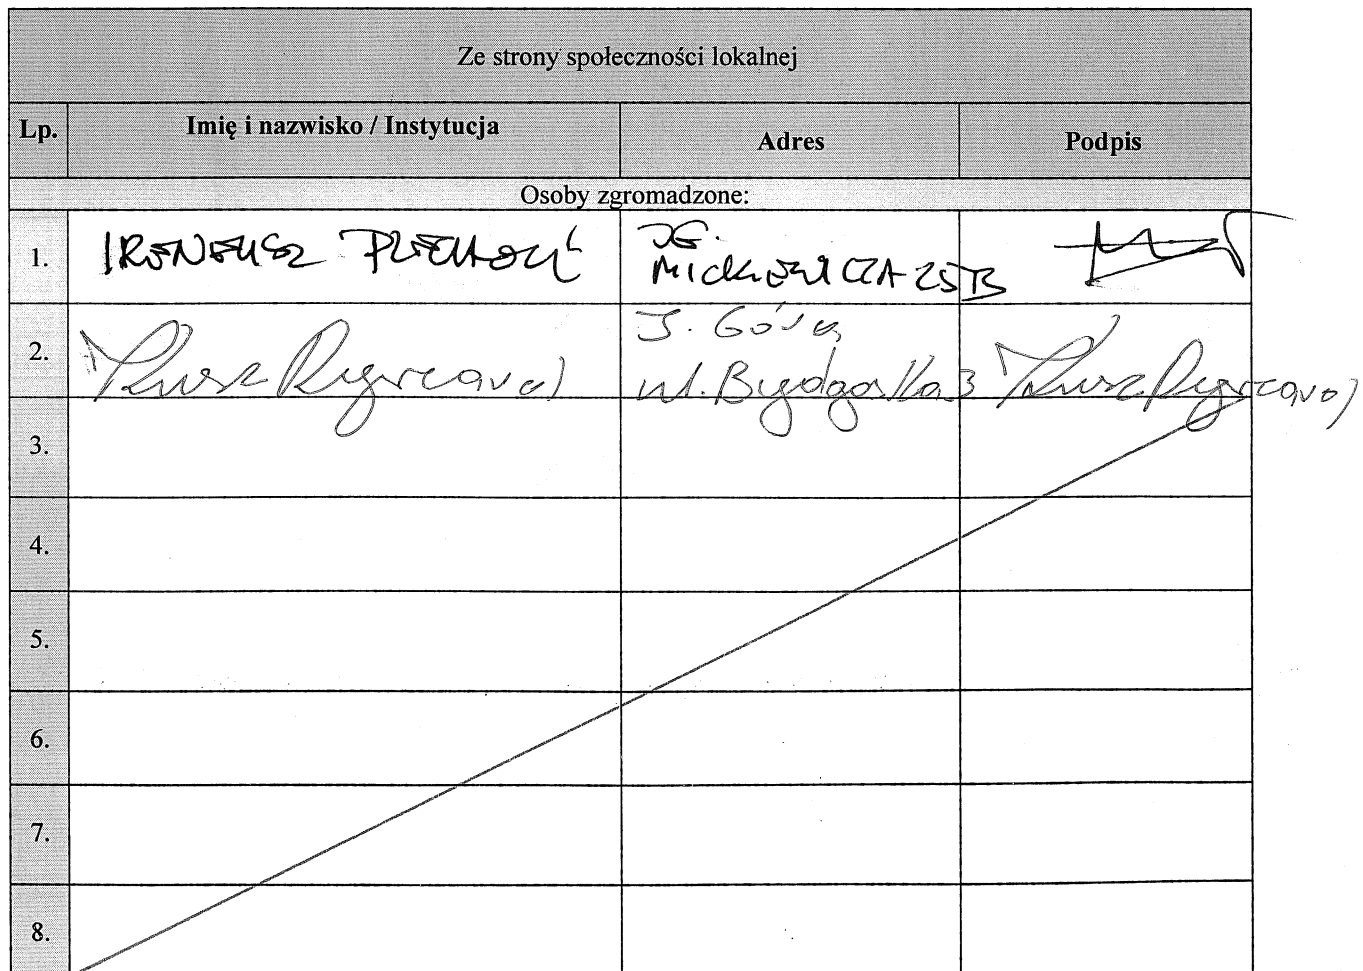 Ze strony społeczności lokalnej
Lp. Imię i nazwisko / Instytucja Adres Podpis
Osoby zgromadzone:
1. IRENEUSZ JG.
MICKIEWICZA 25B
2. J. Góra,
ul. Bydgoska 3
3.
4.
5.
6.
7.
8.